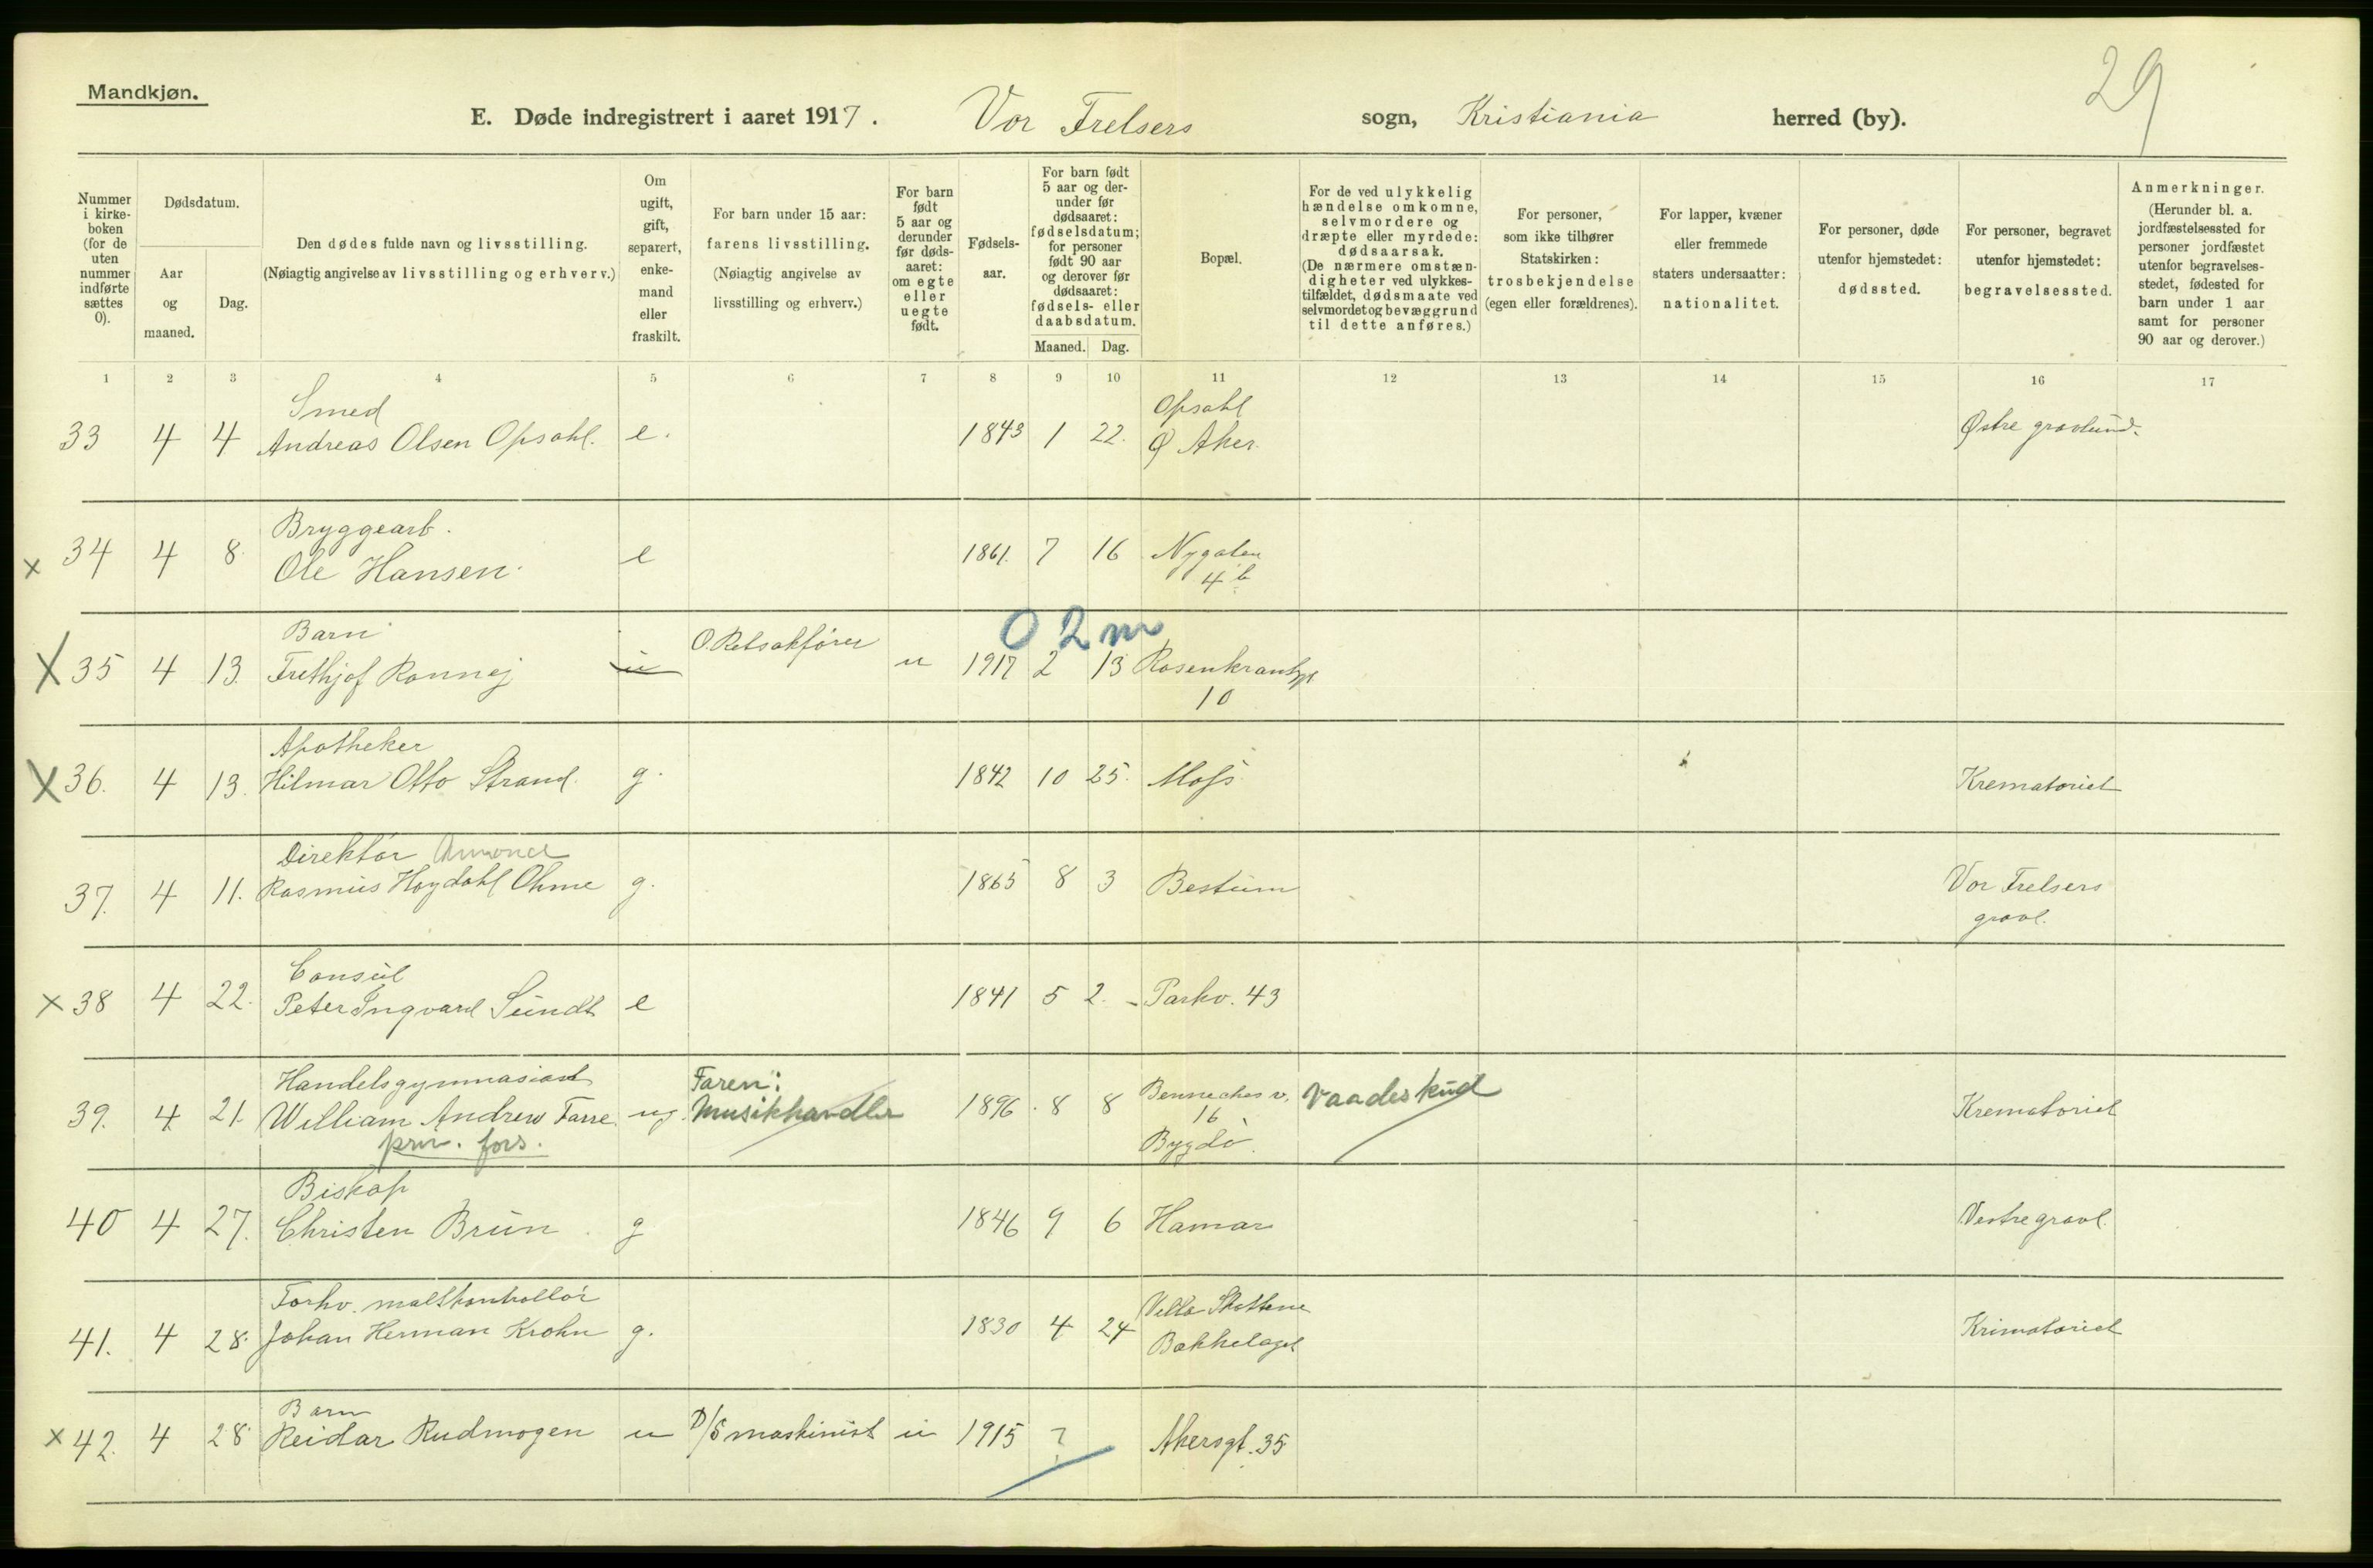 29
Mandkjøn.
E. Døde indregistrert i aaret 1917. Vor Frelsers sogn, Kristiania herred (by).
Nummer i kirke-boken (for de uten nummer indførte sættes 0).
Dødsdatum.
Aar og maaned.
Dag.
Den dødes fulde navn og livsstilling.
(Nøiagtig angivelse av livsstilling og erhverv.)
Om ugift, gift, separert, enke-mand eller fraskilt.
For barn under 15 aar: farens livsstilling.
(Nøiagtig angivelse av livsstilling og erhverv.)
For barn født 5 aar og derunder før døds-aaret: om egte eller uegte født.
Fødsels-aar.
For barn født 5 aar og der-under før dødsaaret: fødselsdatum; for personer født 90 aar og derover før dødsaaret: fødsels- eller daabsdatum.
Maaned. Dag.
Bopæl.
For de ved ulykkelig hændelse omkomne, selvmordere og dræpte eller myrdede: dødsaarsak.
(De nærmere omstæn-digheter ved ulykkes-tilfældet, dødsmaate ved selvmordet og bevæggrund til dette anføres.)
For personer, som ikke tilhører Statskirken: trosbekjendelse (egen eller forældrenes).
For lapper, kvæner eller fremmede staters undersaatter: nationalitet.
For personer, døde utenfor hjemstedet: dødssted.
For personer, begravet utenfor hjemstedet: begravelsessted.
Anmerkninger.
(Herunder bl. a. jordfæstelsessted for personer jordfæstet utenfor begravelses-stedet, fødested for barn under 1 aar samt for personer 90 aar og derover.)
1 2 3 4 5 6 7 8 9 10 11 12 13 14 15 16 17
Smed Opsahl
33 4 4 Andreas Olsen Opsahl. e. 1843 1 22. Ø Aker. Østre gravlund.
Bryggearb.
x 34 4 8 Ole Hansen. e 1861. 7 16 Nygaten
4 b
0 2 m
Barn O.Retsakfører
X 35 4 13. Frethjof Ronnej u u 1917 2 13 Rosenkrantzgt
10
Apotheker
X 36. 4 13. Hilmar Otto Strand. g. 1842 10 25. Moss Krematoriet
Direktør Annonce
37. 4 11. Rasmus Hoydahl Ohme g. 1865 8 3 Bestum Vor Frelsers
gravl.
Consul
x 38 4 22. Peter Ingvard Sundt e 1841 5 2. - Parkv. 43
Handelsgymnasiast Faren: Benneches v.
39. 4 21. William Andrew Farre ug. Musikhandler 1896. 8 8 16 Vaadeskud Krematoriet
priv. fors. Bygdø.
Biskop
40 4 27. Christen Brun g 1846 9 6 Hamar Vestre gravl.
Forhv. maltkontrollør Villa Skottene
41. 4 28. Johan Herman Krohn g. 1830 4 24 Bækkelaget Krimatoriet
Barn
x 42. 4 28. Reidar Rudmogen u D/S maskinist u 1915 ? Akersgt. 35